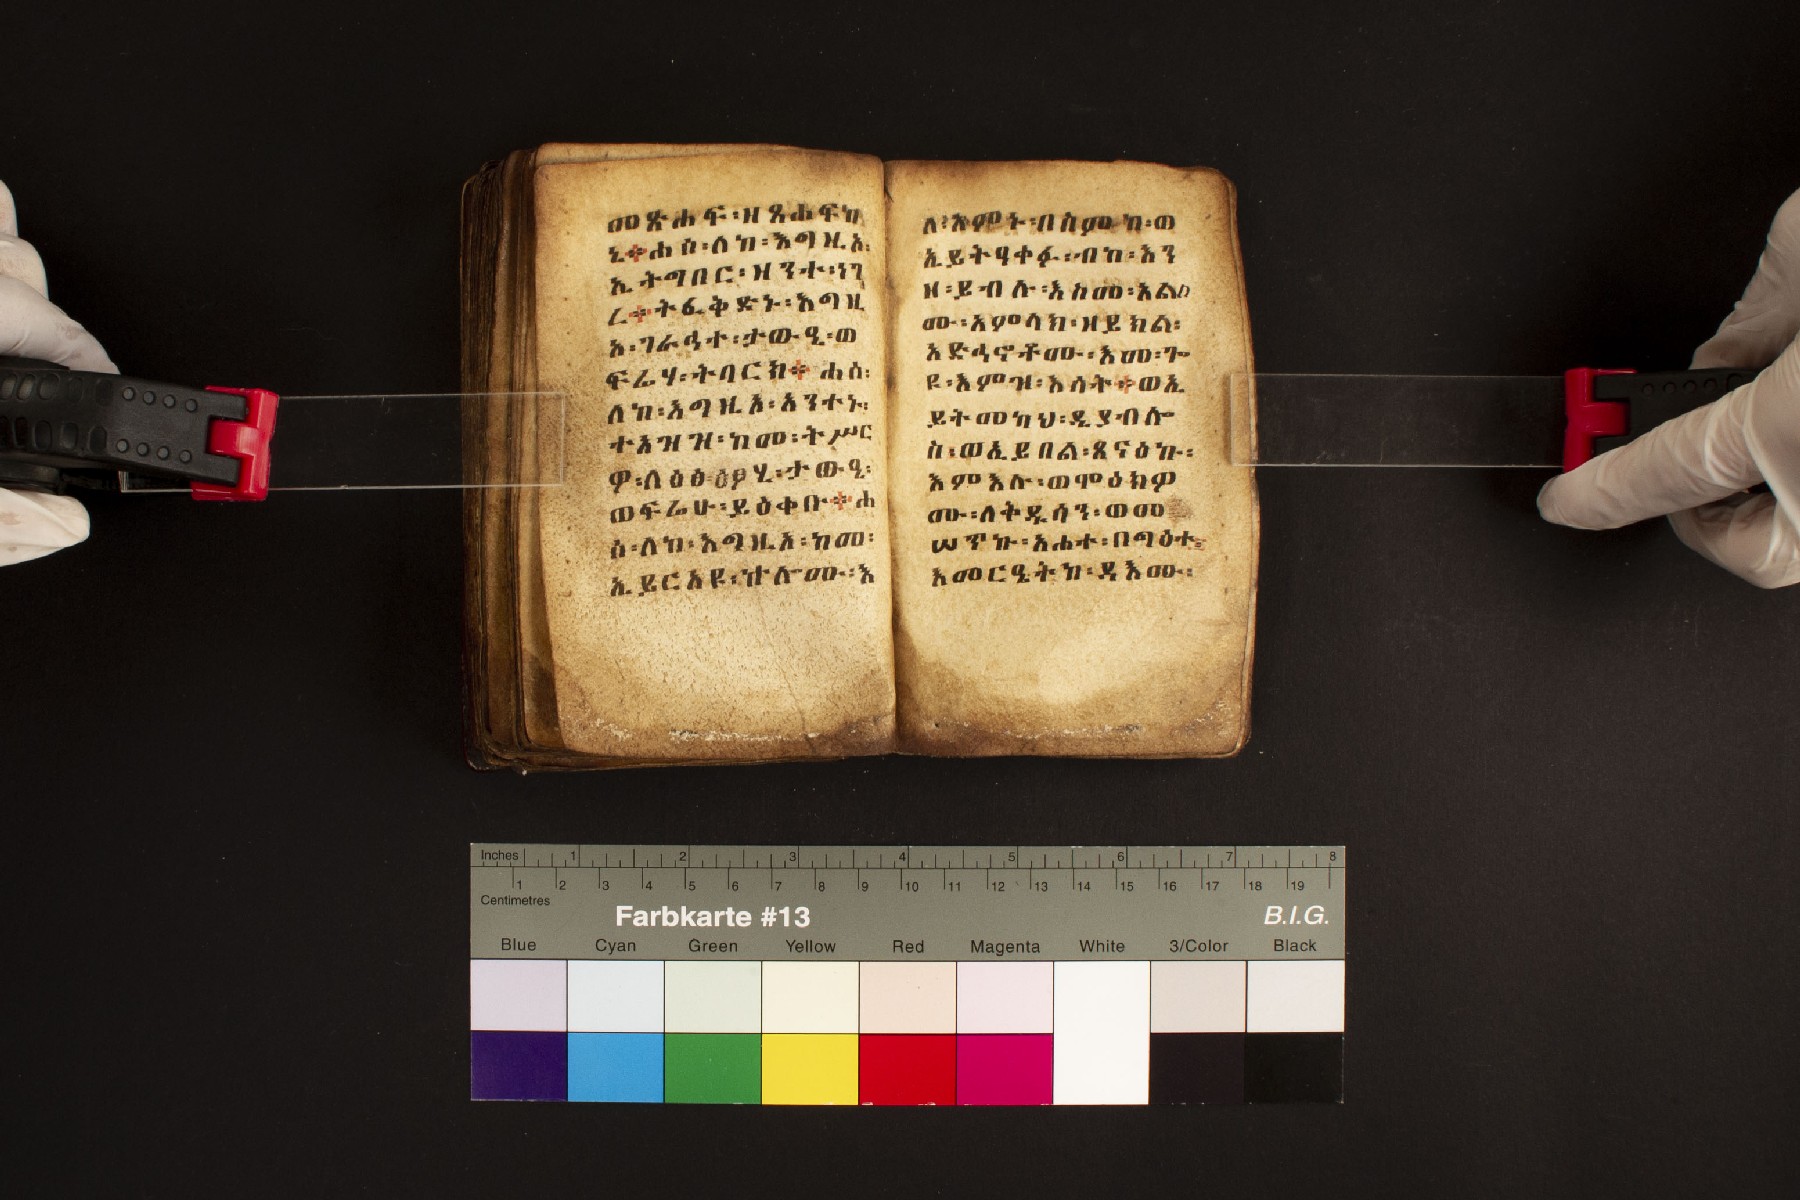 መጽሐፍ፡ዘጸሐፍከ
ኒ፡ሐሰ፡ለከ፡እግዚአ፡
ኢትግበር፡ዘንተ፡ነገ
ረ፡ትፈቅድኑ፡እግዚ
አ፡ገራህተ፡ታውዒ፡ወ
ፍሬሃ፡ትባርክ፡ሐሰ፡
ለከ፡እግዚአ፡አንተኑ፡
ተአዝዝ፡ከመ፡ትሥር
ዎ፡ለዕፅ፡ታውዒ፡
ወፍሬሁ፡ይዕቀቡ፡ሐ
ሰ፡ለከ፡እግዚአ፡ከመ፡
ኢይርአዩ፡ኵሎሙ፡እ
ለ፡አምኑ፡በስምከ፡ወ
ኢይትዓቀፉ፡ብከ፡እን
ዘ፡ይብሉ፡እስመ፡አልቦ
ሙ፡አምላክ፡ዘይክል፡
አድኅኖቶሙ፡እመ፡ጐ
ዩ፡እምዝ፡እሳት፡ወኢ
ይትመካህ፡ዲያብሎ
ስ፡ወኢይበል፡ጸናዕኩ፡
እምእሉ፡ወሞዕክዎ
ሙ፡ለቅዱሳን፡ወመ
ሠጥኩ፡አሐተ፡በግዕተ፡
እመርዔትከ፡ዳእሙ፡
Inches 1 2 3 4 5 6 7 8
1 2 3 4 5 6 7 8 9 10 11 12 13 14 15 16 17 18 19
Centimetres
Farbkarte #13 B.I.G.
Blue Cyan Green Yellow Red Magenta White 3/Color Black